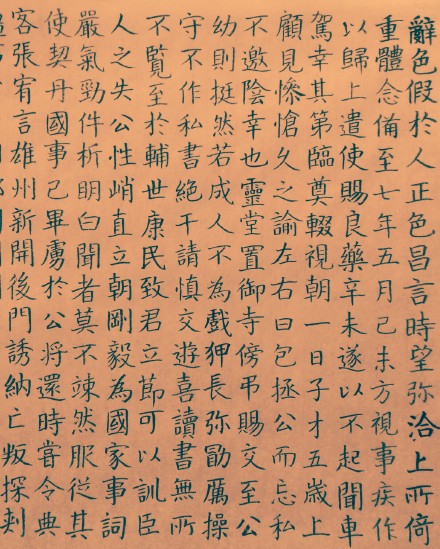 辭色假於人正色昌言時望弥洽上所倚
重體念備至七年五月己未方視事疾作
以歸上遣使賜良藥辛未遂以不起聞車
駕幸其第臨奠輟視朝一日子才五歲上
顧見慘愴久之論左右曰包拯公而忘私
不邀陰幸也靈堂置御寺傍弔賜交至公
幼則挺然若成人不為戲狎長弥勖厲操
守不作私書絕干請慎交遊喜讀書無所
不覽至於輔世康民致君立節可以訓臣
人之失公性峭直立朝剛毅為國家事詞
嚴氣勁件析明白聞者莫不竦然服從其
使契丹國事已畢虜於公將還時嘗令典
客張宥言雄州新開後門誘納亡叛探刺